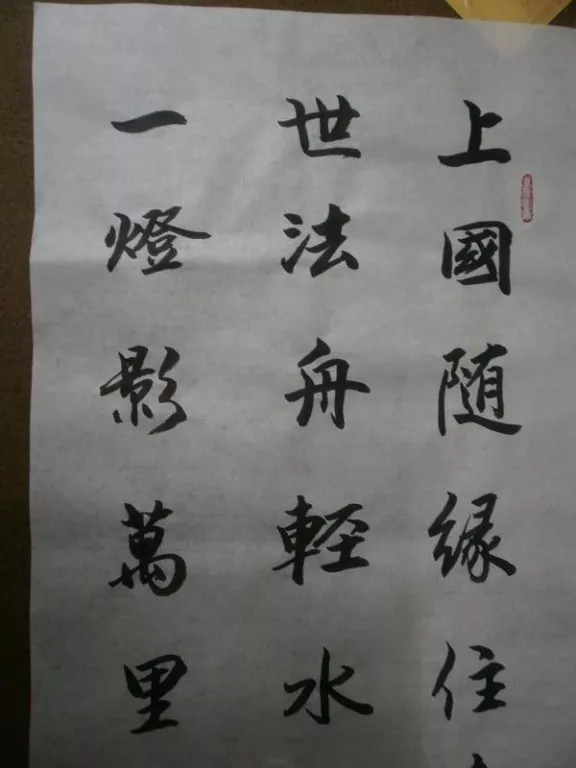 上國随縁住
世法舟輕水
一燈影萬里